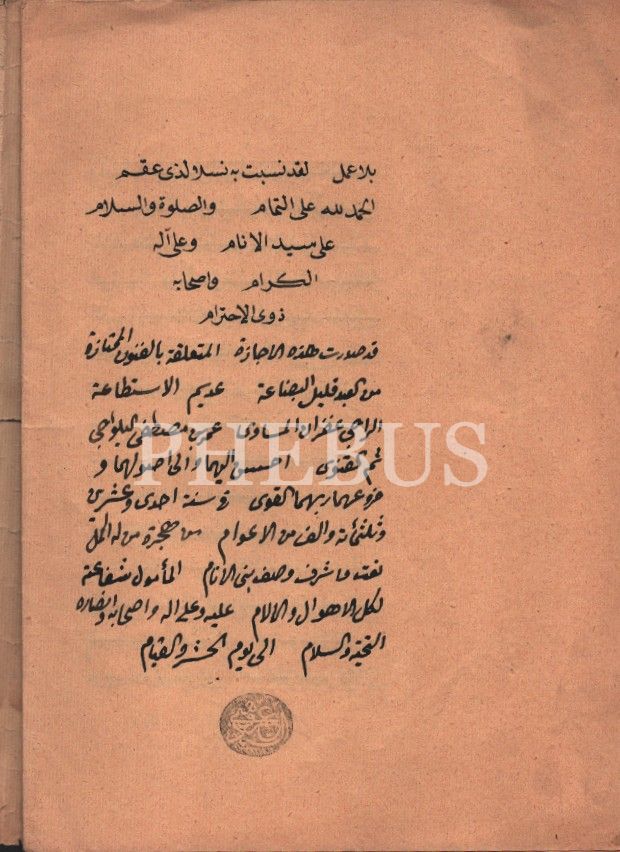 بلاعمل لقد نسبت به نسلا لذى عقم
الحمد لله على التمام والصلوة والسلام
على سيد الانام وعلى آله
الكرام واصحابه
ذوى الاحترام
قد صدرت هذه الاجازة المتعلقة بالفنون الممتازة
من العبد قليل البضاعة عديم الاستطاعة
الراجى غفران المساوى عمر بن مصطفى اليلواجى
ثم القنوى احسن اليهما والى اصولهما و
فروعهما ربهما القوى فى سنة احدى وعشرين
وثلثمائة والف من الاعوام من هجرة من له
نعت ما شرف وصف بنى الانام المأمول شفاعته
لكل الاهوال والآلام عليه وعلى اله واصحابه وانصاره
التحية والسلام الى يوم الحشر والقيام
PHEBUS